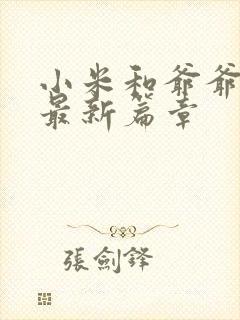 小米和爷爷
最新篇章
張劍鋒